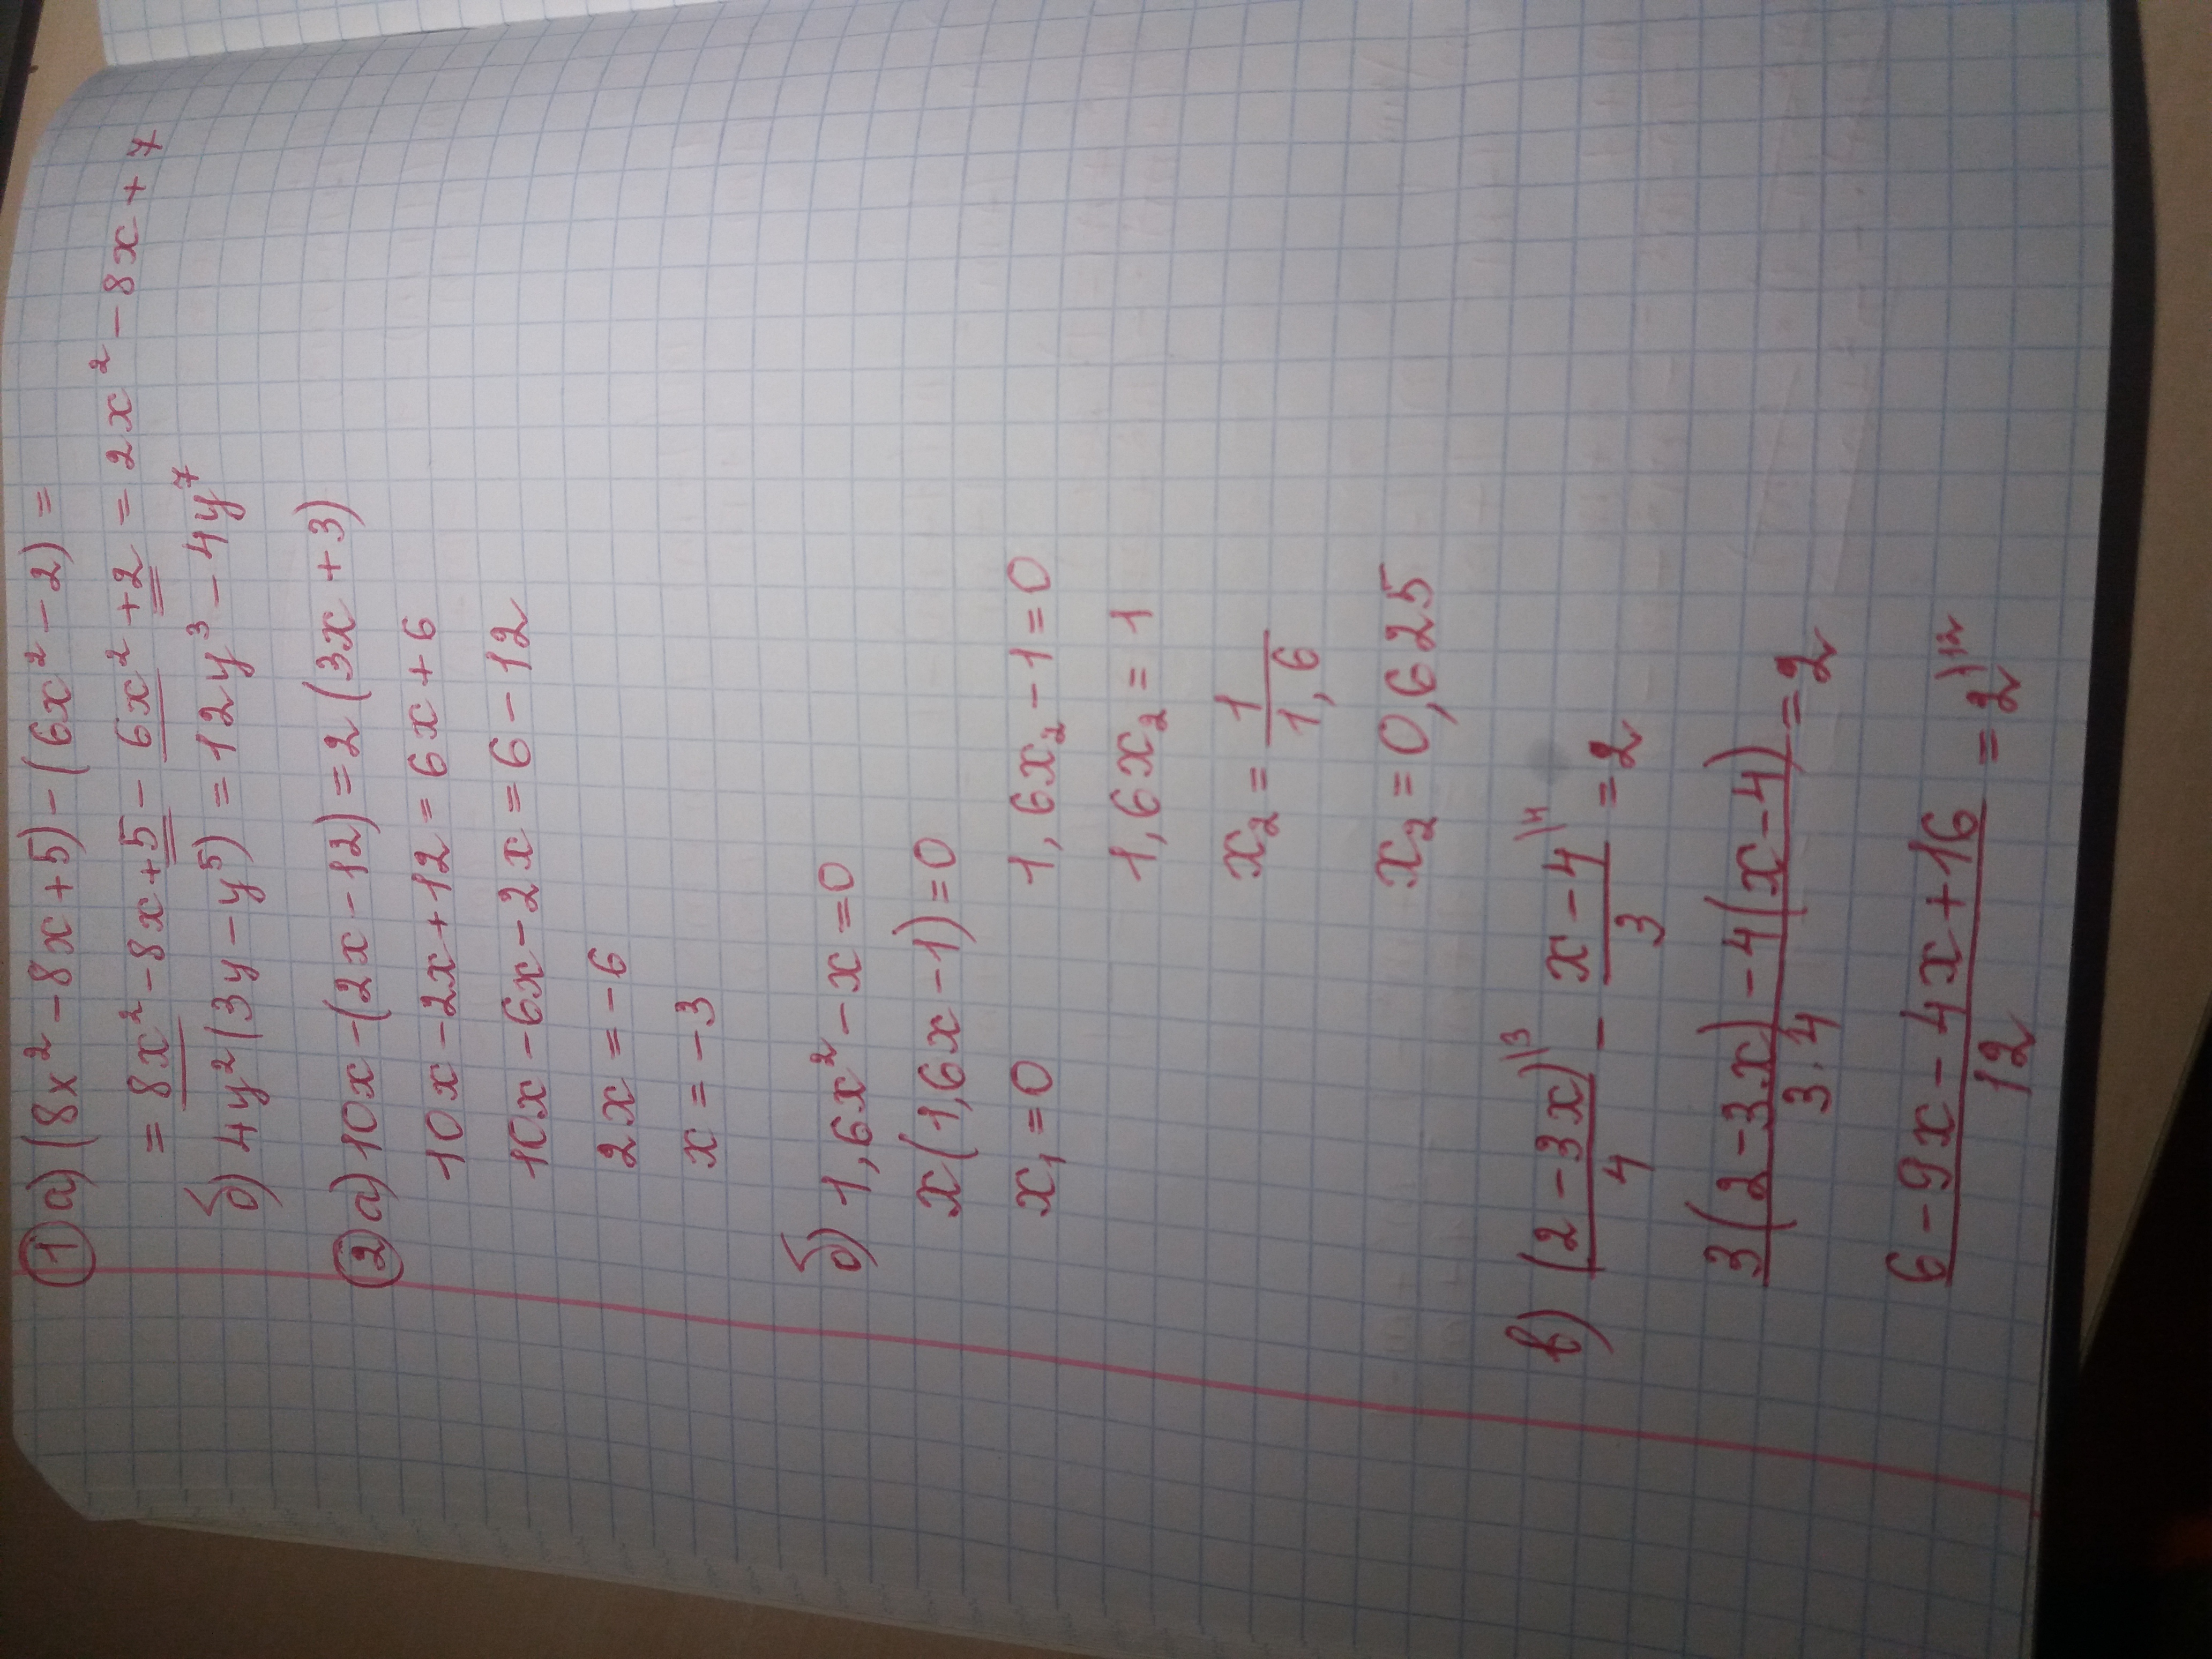 ① а) (8x² - 8x + 5) - (6x² - 2) =
= 8x² - 8x + 5 - 6x² + 2 = 2x² - 8x + 7
б) 4y² (3y - y⁵) = 12y³ - 4y⁷
② а) 10x - (2x - 12) = 2 (3x + 3)
10x - 2x + 12 = 6x + 6
10x - 6x - 2x = 6 - 12
2x = -6
x = -3
б) 1,6x² - x = 0
x (1,6x - 1) = 0
x₁ = 0 1,6x₂ - 1 = 0
1,6x₂ = 1
x₂ = 1/1,6
x₂ = 0,625
в) (2 - 3x)\³/4 - x - 4\⁴/3 = 2
3(2 - 3x) - 4(x - 4)/3 · 4 = 2
6 - 9x - 4x + 16/12 = 2\¹²